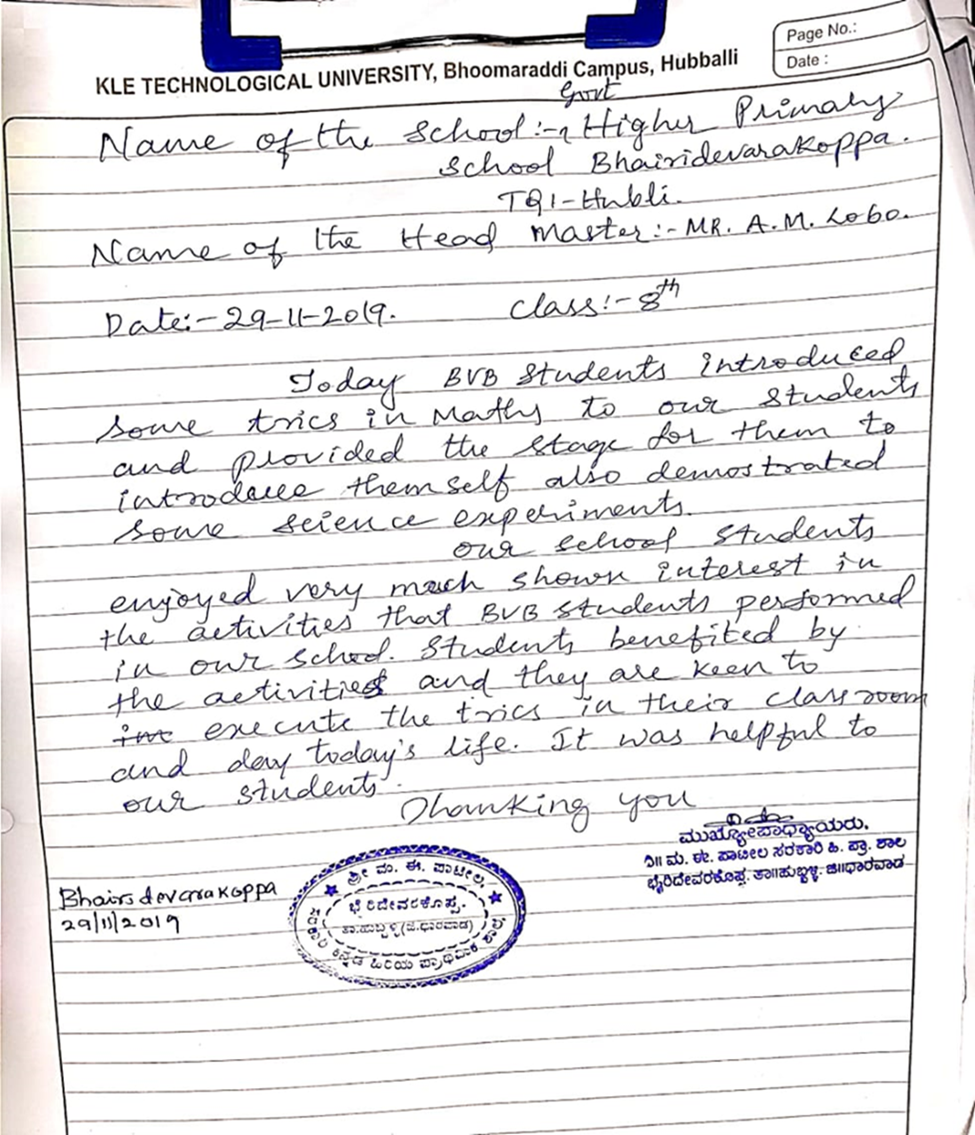 Page No.:
Date :
KLE TECHNOLOGICAL UNIVERSITY, Bhoomaraddi Campus, Hubballi
Govt
Name of the School:- Higher Primary
School Bhairidevarakoppa.
TQ1-Hubli.
Name of the Head Master:- MR. A.M. Lobo.
Date:- 29-11-2019. Class:- 8th
Today BVB Students introduced
some trics in Maths to our students
and provided the stage for them to
introduce themself also demostrated
some science experiments.
our school students
enjoyed very much shown interest in
the activities that BVB students performed
in our school. Students benefited by
the activities and they are keen to
int execute the trics in their classroom
and day today's life. It was helpful to
our students.
Thanking you
ಮುಖ್ಯೋಪಾಧ್ಯಾಯರು.
ಮ. ಈ. ಪಾಟೀಲ ಸರಕಾರಿ ಹಿ. ಪ್ರಾ. ಶಾಲ
ಭೈರಿದೇವರಕೊಪ್ಪ. ತಾ॥ಹುಬ್ಬಳ್ಳಿ. ಜಿ॥ಧಾರವಾಡ
Bhairidevarakoppa
29/11/2019
ಶ್ರೀ ಮ. ಈ. ಪಾಟೀಲ.
ಭೈರಿದೇವರಕೊಪ್ಪ.
ತಾ.ಹುಬ್ಬಳ್ಳಿ (ಜಿ.ಧಾರವಾಡ)
ಸರಕಾರಿ ಕನ್ನಡ ಹಿರಿಯ ಪ್ರಾಥಮಿಕ ಶಾಲೆ